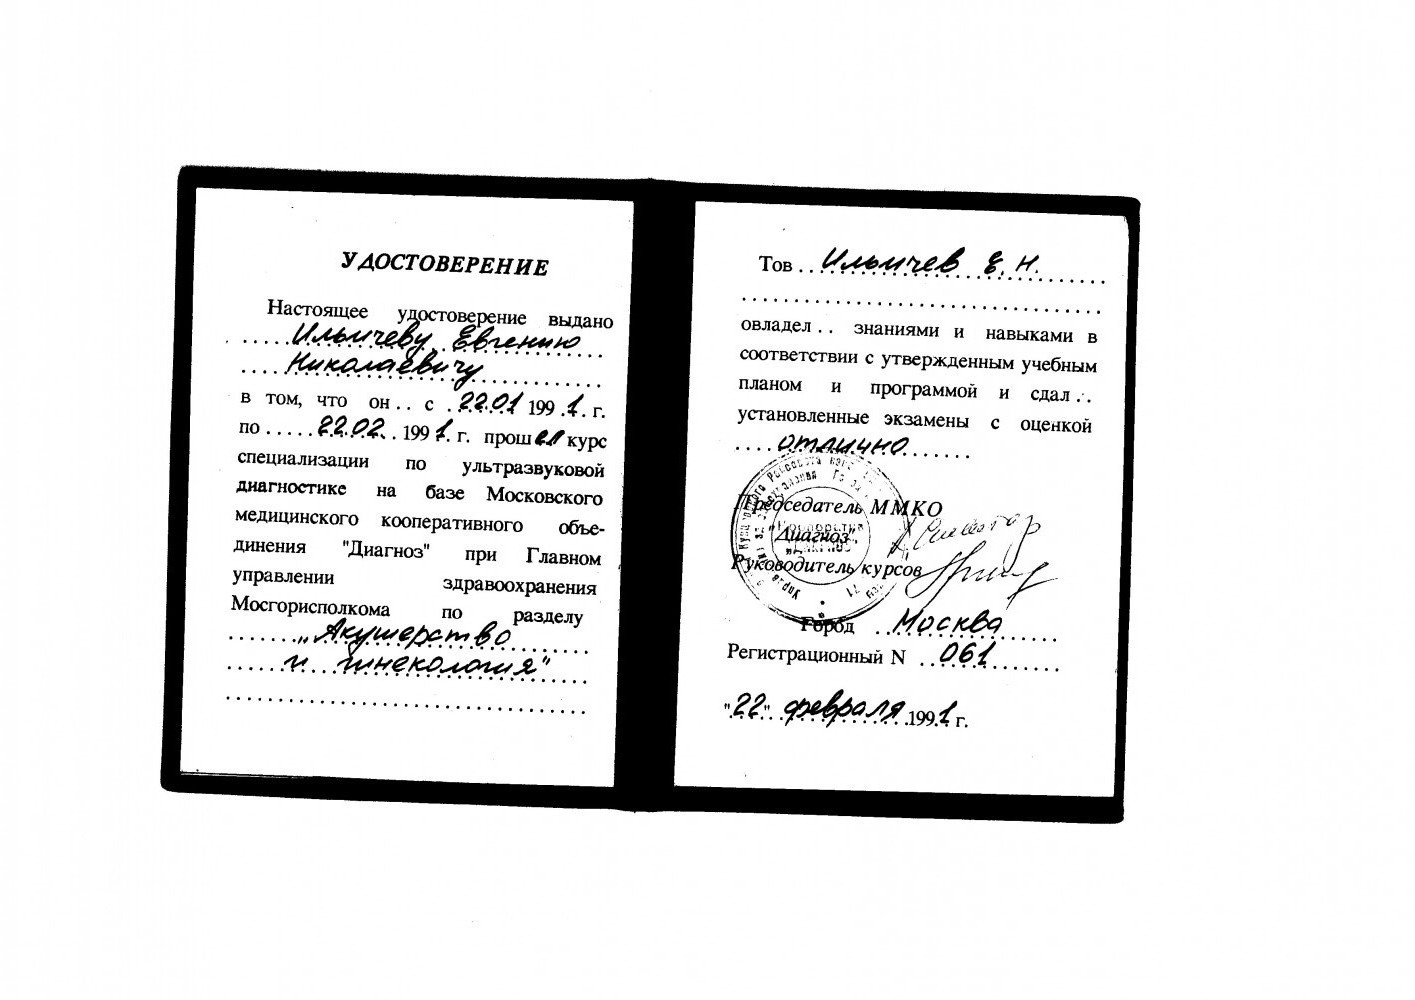 УДОСТОВЕРЕНИЕ
Настоящее удостоверение выдано
Ильичеву Евгению
Николаевичу
в том, что он.. с ..22.01 199.1. г.
по.....22.02..199 1. г. прошел курс
специализации по ультразвуковой
диагностике на базе Московского
медицинского кооперативного объе-
динения "Диагноз" при Главном
управлении здравоохранения
Мосгорисполкома по разделу
„Акушерство
и гинекология"
Тов... Ильичев Е. Н.
овладел.. знаниями и навыками в
соответствии с утвержденным учебным
планом и программой и сдал..
установленные экзамены с оценкой
....отлично
Председатель ММКО
"Диагноз"
Руководитель курсов
Город ..Москва
Регистрационный N ..061
"22" февраля 1991 г.